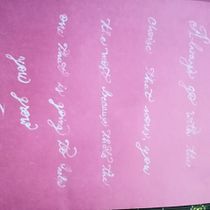 Always go with the
choice that scares you
the most because that's the
one that is going to help
you grow